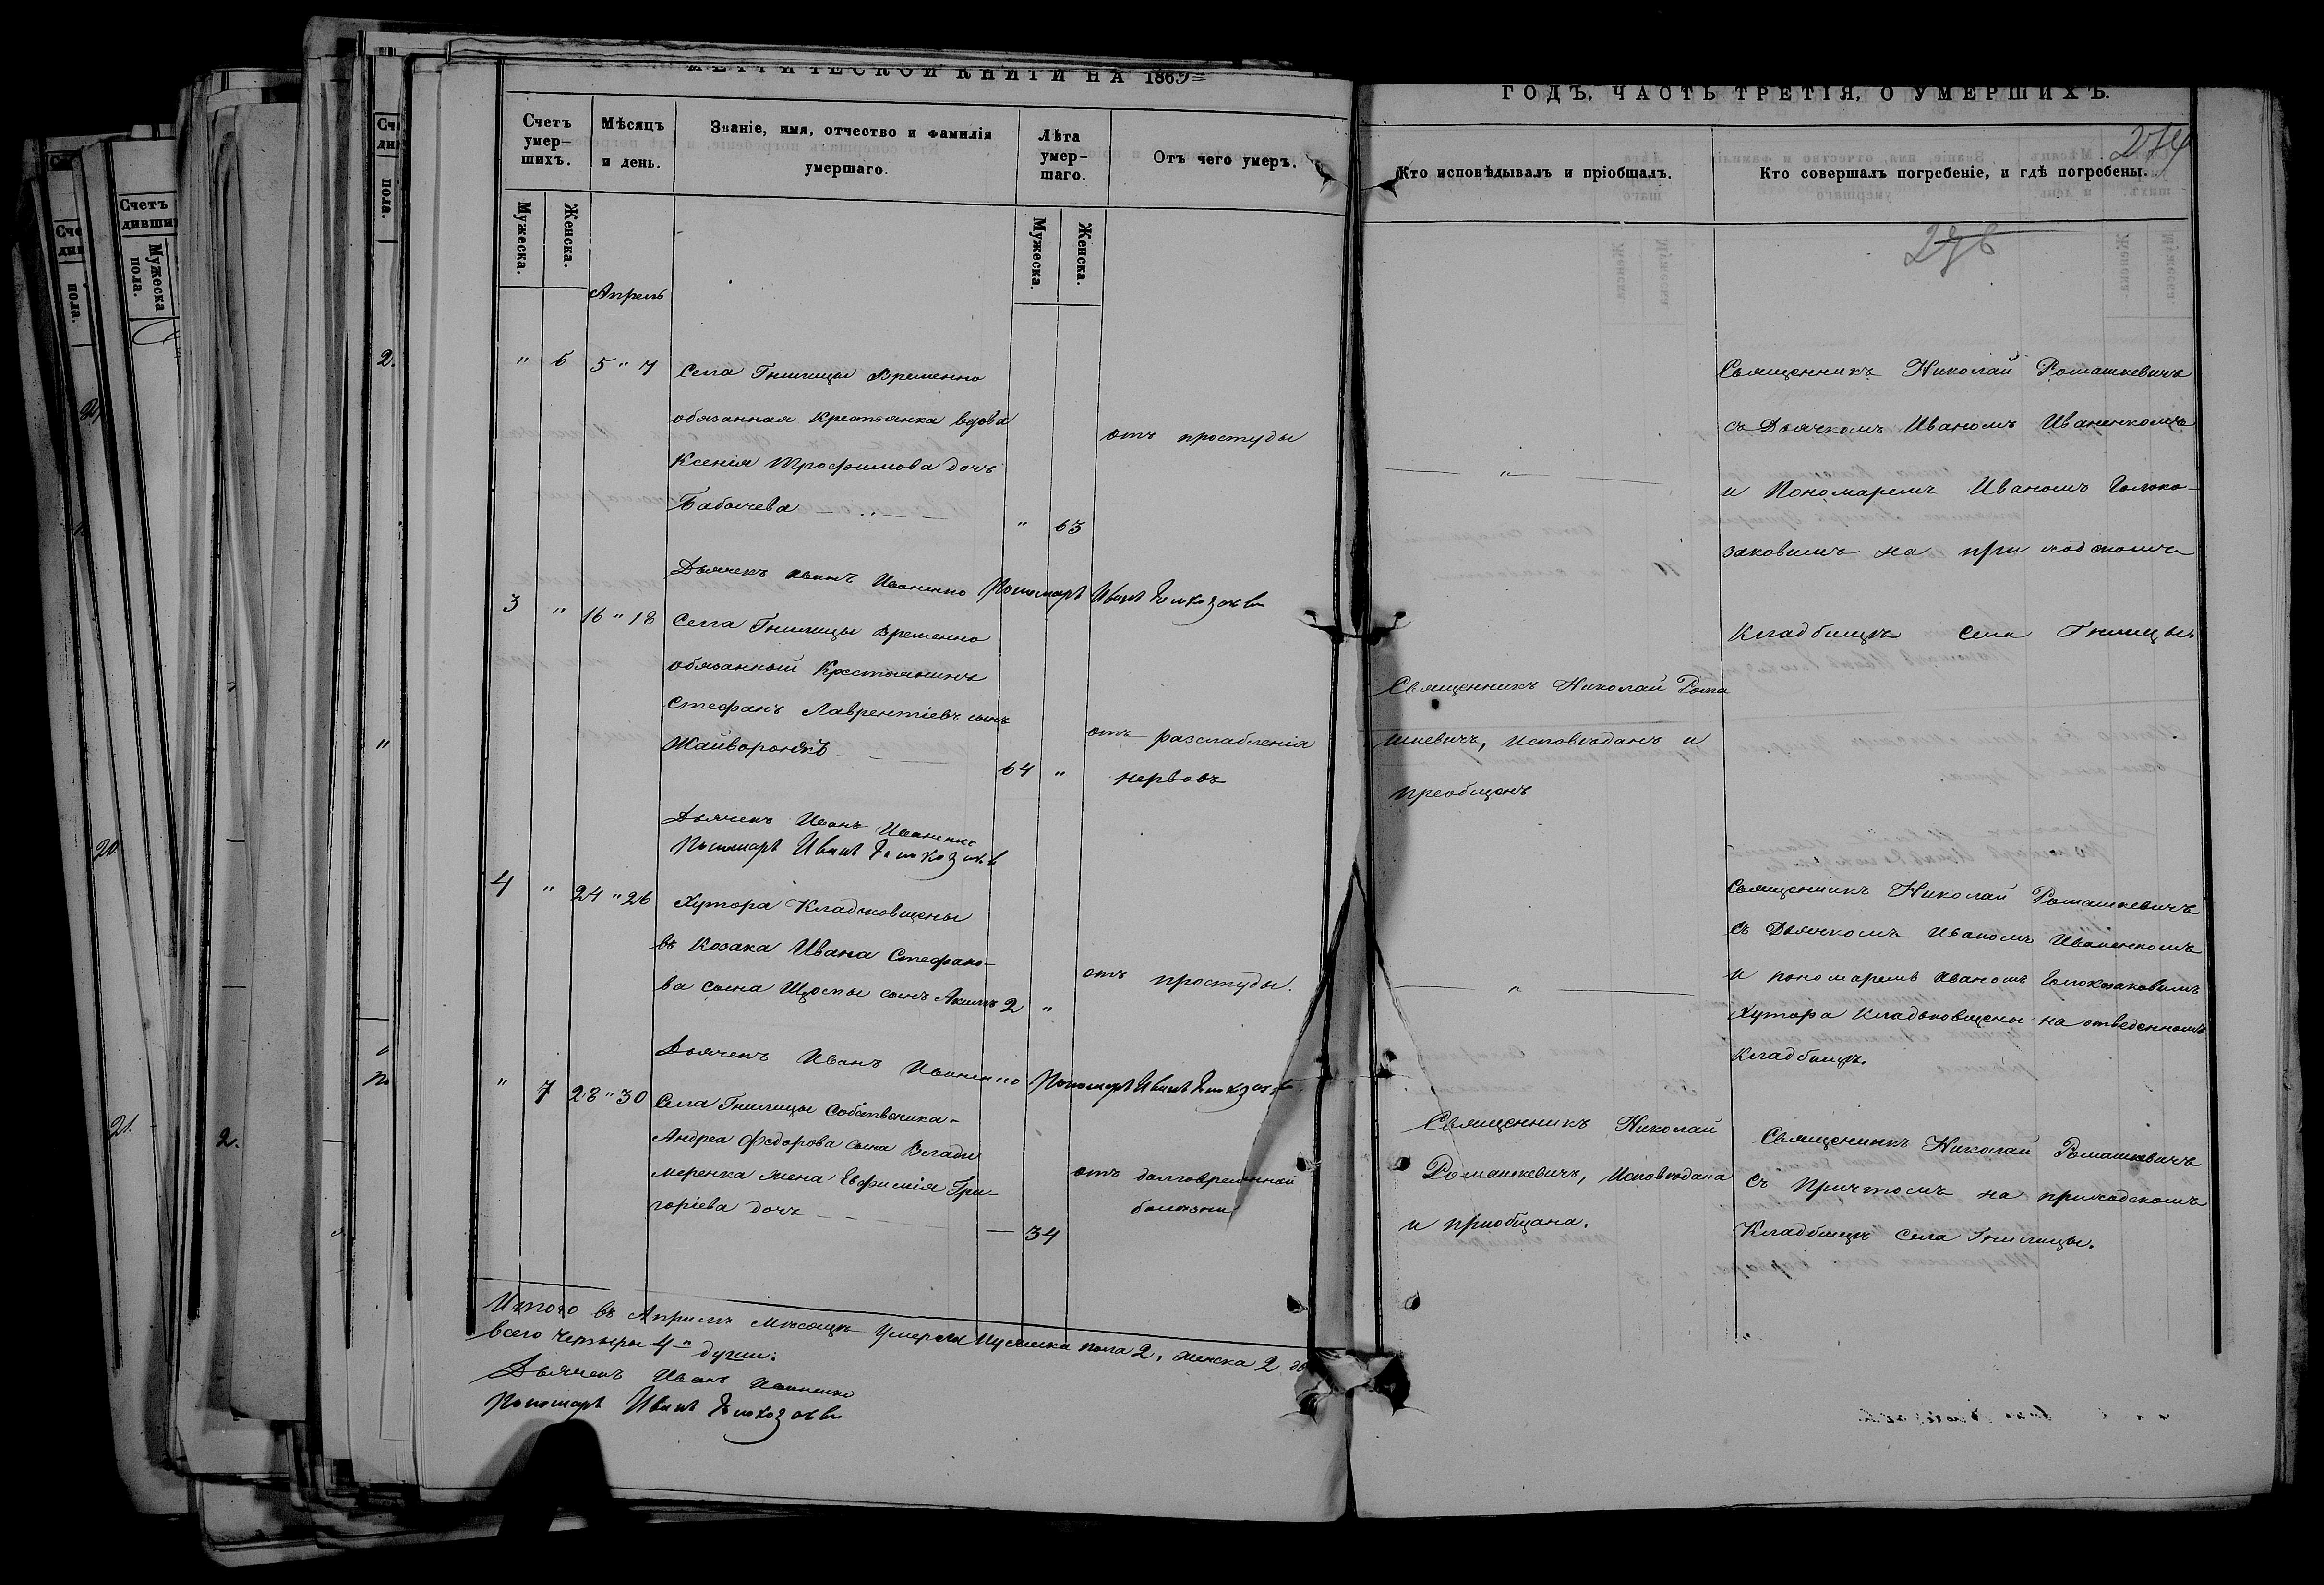 МЕТРИЧЕСКОЙ КНИГИ НА 1865
ГОДЪ, ЧАСТЬ ТРЕТІЯ, О УМЕРШИХЪ.
274
Счетъ умер-шихъ.
Мѣсяцъ и день.
Званіе, имя, отчество и фамилія умершаго.
Лѣта умер-шаго.
Отъ чего умеръ.
Кто исповѣдывалъ и пріобщалъ.
Кто совершалъ погребеніе, и гдѣ погребены.
Мужеска.
Женска.
Мужеска.
Женска.
276
Апрель
" 6 5 " 7
Села Гнилицы Временно
обязанная Крестьянка вдова
Ксенія Трофимова дочь
Бабычева
" 63
отъ простуды
"
Священникъ Николай Ромашкевичъ
съ Дьячкомъ Иваномъ Иваненкомъ
и Пономаремъ Иваномъ Голоко-
заковимъ на приходскомъ
Кладбищѣ села Гнилицы
Дьячекъ Иванъ Иваненко Пономарь Иванъ Голокозаковъ
3 " 16 " 18
Села Гнилицы Временно
обязанный Крестьянинъ
Стефанъ Лаврентіевъ сынъ
Жайворонокъ
64 "
отъ разслабленія
нервовъ
Священникъ Николай Рома
шкевичъ, Исповѣданъ и
преобщенъ
Дьячекъ Иванъ Иваненко
Пономарь Иванъ Голокозаковъ
4 " 24 " 26
Хутора Кладковщены
въ Козака Ивана Стефано-
ва сына сынъ Акимъ
2 "
отъ простуды.
"
Священникъ Николай Ромашкевичъ
съ Дьячкомъ Иваномъ Иваненкомъ
и пономаремъ Иваномъ Голокозаковимъ
Хутора Кладьковщены на отведенномъ
Кладбищѣ.
Дьячекъ Иванъ Иваненко Пономарь Иванъ Голокозаковъ
" 7 28 " 30
Села Гнилицы Собственика
Андрея Федорова сына Влади
меренка жена Евфимія Гри-
горіева дочь
34
отъ долговременной
болезни
Священникъ Николай
Ромашкевичъ, Исповѣдана
и приобщана.
Священникъ Николай Ромашкевичъ
съ Причтомъ на приходскомъ
Кладбищѣ села Гнилицы.
Итого въ Априлѣ Мѣсяцѣ Умерли Мужеска пола 2, женска 2,
всего четыри 4 души:
Дьячекъ Иванъ Иваненко
Пономарь Иванъ Голокозаковъ